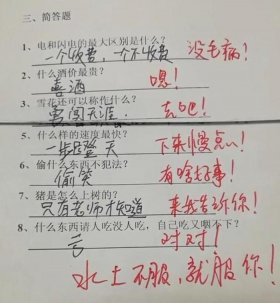 三、简答题
1、电和闪电的最大区别是什么？
一个收费，一个不收费 没毛病！
2、什么酒价最贵？
喜酒 嗯！
3、雪花还可以称作什么？
雪闯天涯 去吧！
5、什么样的速度最快？
一步登天 下来慢点！
6、偷什么东西不犯法？
偷笑 有啥好事！
7、猪是怎么上树的？
只有老师才知道 来我告诉你！
8、什么东西请人吃没人吃，自己吃又咽不下？
亏 对对！
水土不服，就服你！